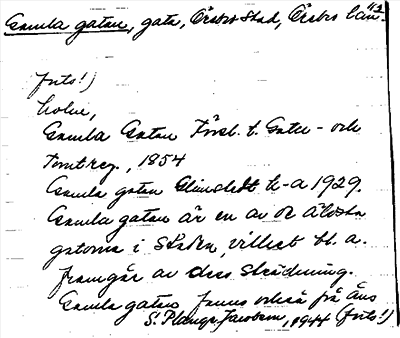 Gamla gatan, gata, Örebro stad, Örebro län.
Forts!)
Gamla Gatan Försl. t. Gatu- och
Tomtreg., 1854
Gamla gatan Elmstedt k-a 1929.
Gamla gatan är en av de äldsta
gatorna i staden, vilket bl. a.
framgår av dess sträckning.
Gamla gatan finns också på Äns
S. Plange Jacobson, 1944 (forts!)